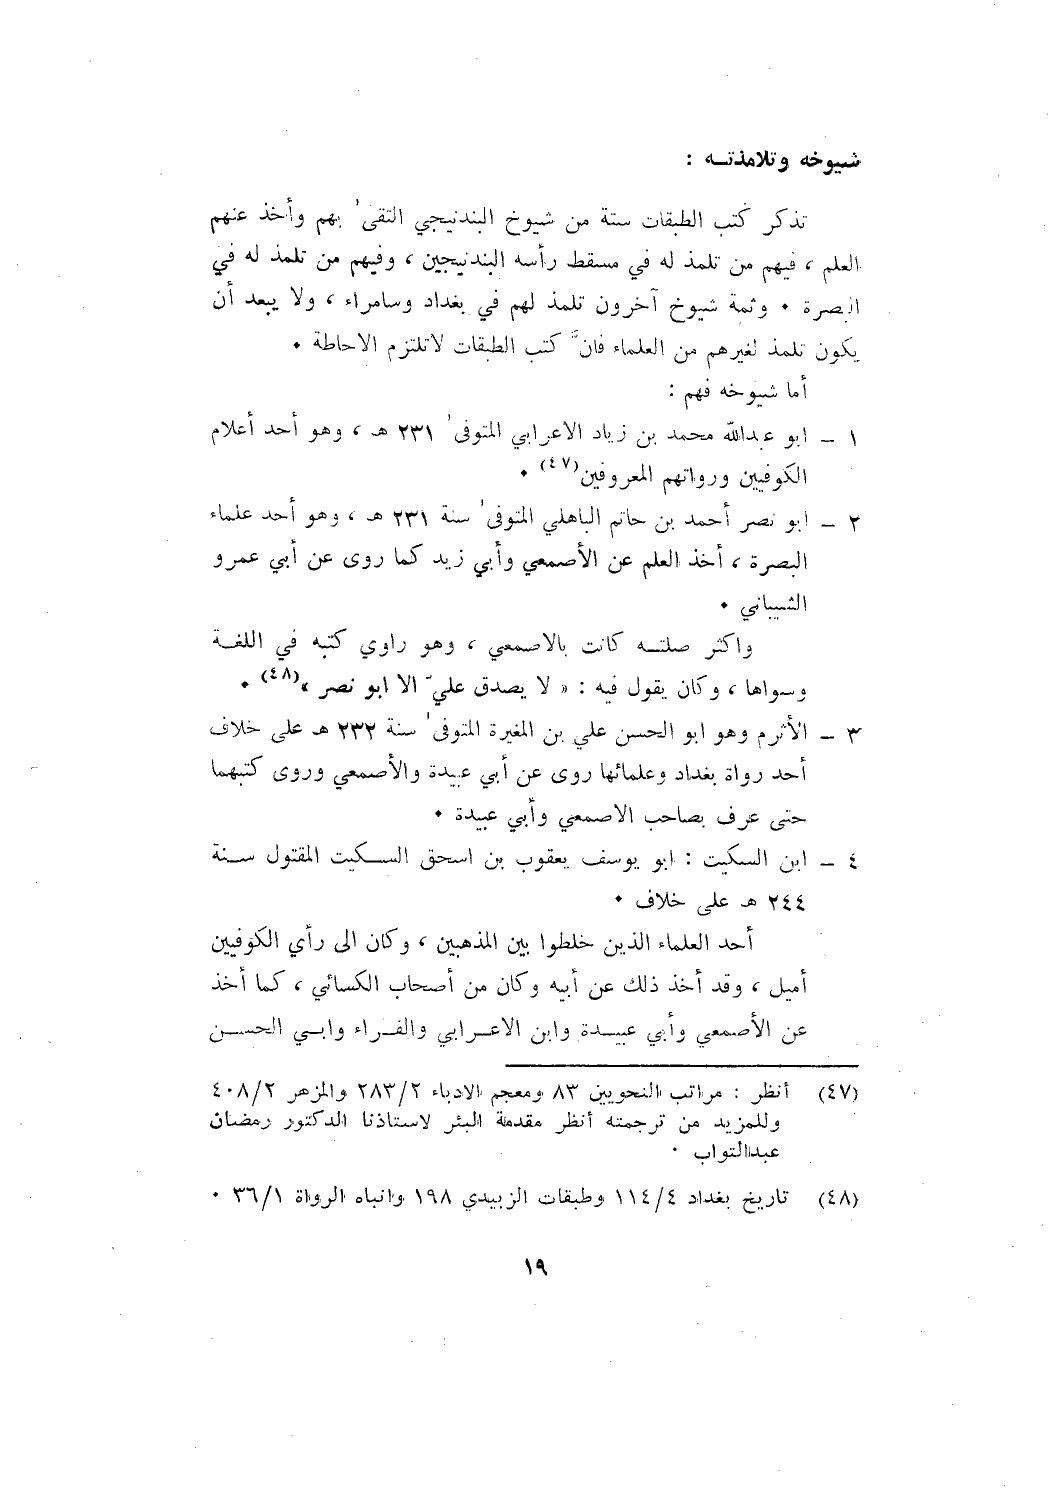 شيوخه وتلامذتــه :
تذكر كتب الطبقات ستة من شيوخ البندنيجي التقى' بهم وأخذ عنهم
العلم ، فيهم من تلمذ له في مسقط رأسه البندنيجين ، وفيهم من تلمذ له في
البصرة • وثمة شيوخ آخرون تلمذ لهم في بغداد وسامراء ، ولا يبعد أن
يكون تلمذ لغيرهم من العلماء فانّ كتب الطبقات لاتلتزم الاحاطة •
أما شيوخه فهم :
١ ــ ابو عبدالله محمد بن زياد الاعرابي المتوفى' ٢٣١ هـ ، وهو أحد أعلام
الكوفيين ورواتهم المعروفين(٤٧) •
٢ ــ ابو نصر أحمد بن حاتم الباهلي المتوفى' سنة ٢٣١ هـ ، وهو أحد علماء
البصرة ، أخذ العلم عن الأصمعي وأبي زيد كما روى عن أبي عمرو
الشيباني •
واكثر صلتــه كانت بالاصمعي ، وهو راوي كتبه في اللغــة
وسواها ، وكان يقول فيه : « لا يصدق عليّ الا ابو نصر »(٤٨) •
٣ ــ الأثرم وهو ابو الحسن علي بن المغيرة المتوفى' سنة ٢٣٢ هـ على خلاف
أحد رواة بغداد وعلمائها روى عن أبي عبيدة والأصمعي وروى كتبهما
حتى عرف بصاحب الاصمعي وأبي عبيدة •
٤ ــ ابن السكيت : ابو يوسف يعقوب بن اسحق السـكيت المقتول سـنة
٢٤٤ هـ على خلاف •
أحد العلماء الذين خلطوا بين المذهبين ، وكان الى رأي الكوفيين
أميل ، وقد أخذ ذلك عن أبيه وكان من أصحاب الكسائي ، كما أخذ
عن الأصمعي وأبي عبيــدة وابن الاعــرابي والفــراء وابــي الحســن
(٤٧) أنظر : مراتب النحويين ٨٣ ومعجم الادباء ٢٨٣/٢ والمزهر ٤٠٨/٢
وللمزيد من ترجمته أنظر مقدمة البئر لاستاذنا الدكتور رمضان
عبدالتواب •
(٤٨) تاريخ بغداد ١١٤/٤ وطبقات الزبيدي ١٩٨ وانباه الرواة ٣٦/١ •
١٩